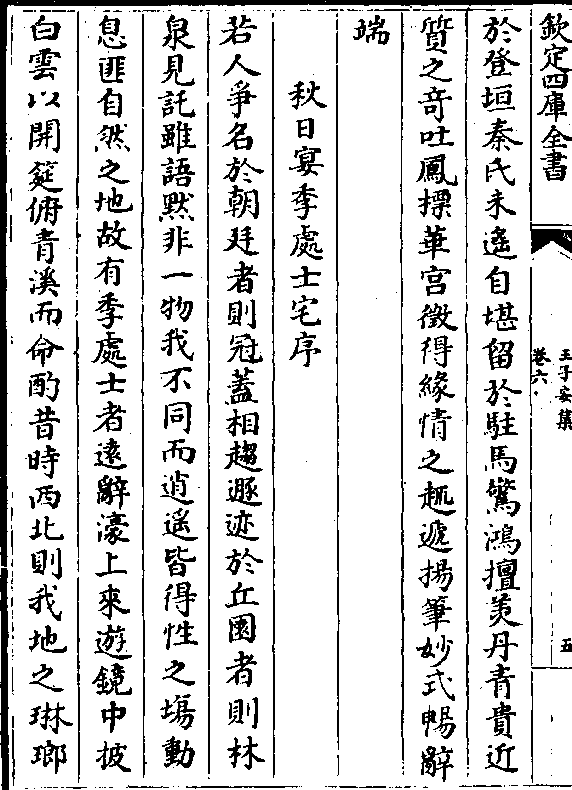 欽定四庫全書
王子安集
卷六
五
於登垣秦氏未遙自堪留於駐馬驚鴻擅美丹青貴近
質之奇吐鳳摽華宮徵得緣情之趣遞揚筆妙式暢辭
端
秋日宴季處士宅序
若人爭名於朝廷者則冠蓋相趨遯迹於丘園者則林
泉見託雖語黙非一物我不同而逍遥皆得性之塲動
息匪自然之地故有季處士者逺辭濠上來遊鏡中披
白雲以開筵俯青溪而命酌昔時西北則我地之琳瑯